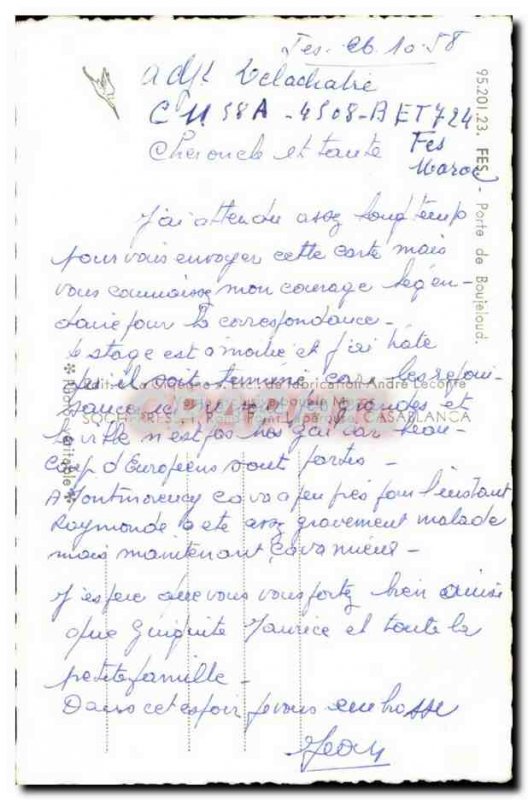 Fes. 26.10.58
adjt Delachatre
CM 58A - 4508 - BET 724
Fes
Maroc
Cher oncle et tante
J'ai attendu assez longtemp
pour vous envoyer cette carte mais
vous connaissez mon courage légen-
daire pour la correspondance -
Le stage est a moitié et j'ai hâte
qu'il soit terminé car les rejoui-
sances ne sont grandes et
la ville n'est pas très gai car beau-
coup d'Européens sont partes -
A Montmorency ca va a peu près pour l'instant
Raymonde a été assez gravement malade
mais maintenant ca va mieux -
J'espere que vous vous portez bien ainsi
que Guiguite Maurice et toute la
petite famille -
Dans cet espoir je vous embrasse
Jean
95.201.23. FES. - Porte de Boujeloud.
Fabrication André Leconte
CASABLANCA